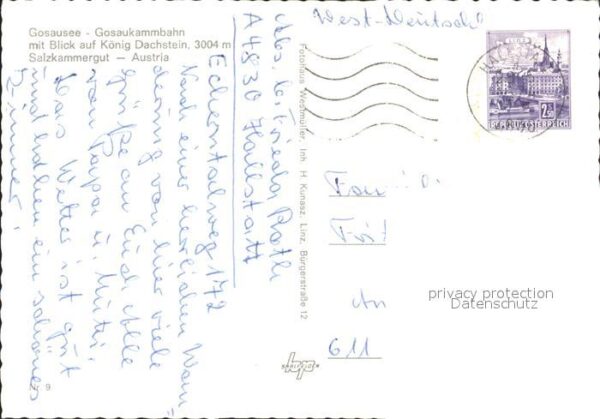 Gosausee - Gosaukammbahn
mit Blick auf König Dachstein, 3004 m
Salzkammergut — Austria
Abs. b. Frieda Roth
A 4830 Hallstatt
Echerntalweg 172
Nach einer herrlichen Wan-
derung von hier viele
Grüße an Euch Alle
von Papa u. Mutti.
Das Wetter ist gut
und haben ein schönes
Zimmer!
9
Fotohaus Westmüller, Inh. H. Kunasz, Linz, Bürgerstraße 12
West-Deutschl
LINZ
REPUBLIK ÖSTERREICH
Fam
An
611
privacy protection
Datenschutz